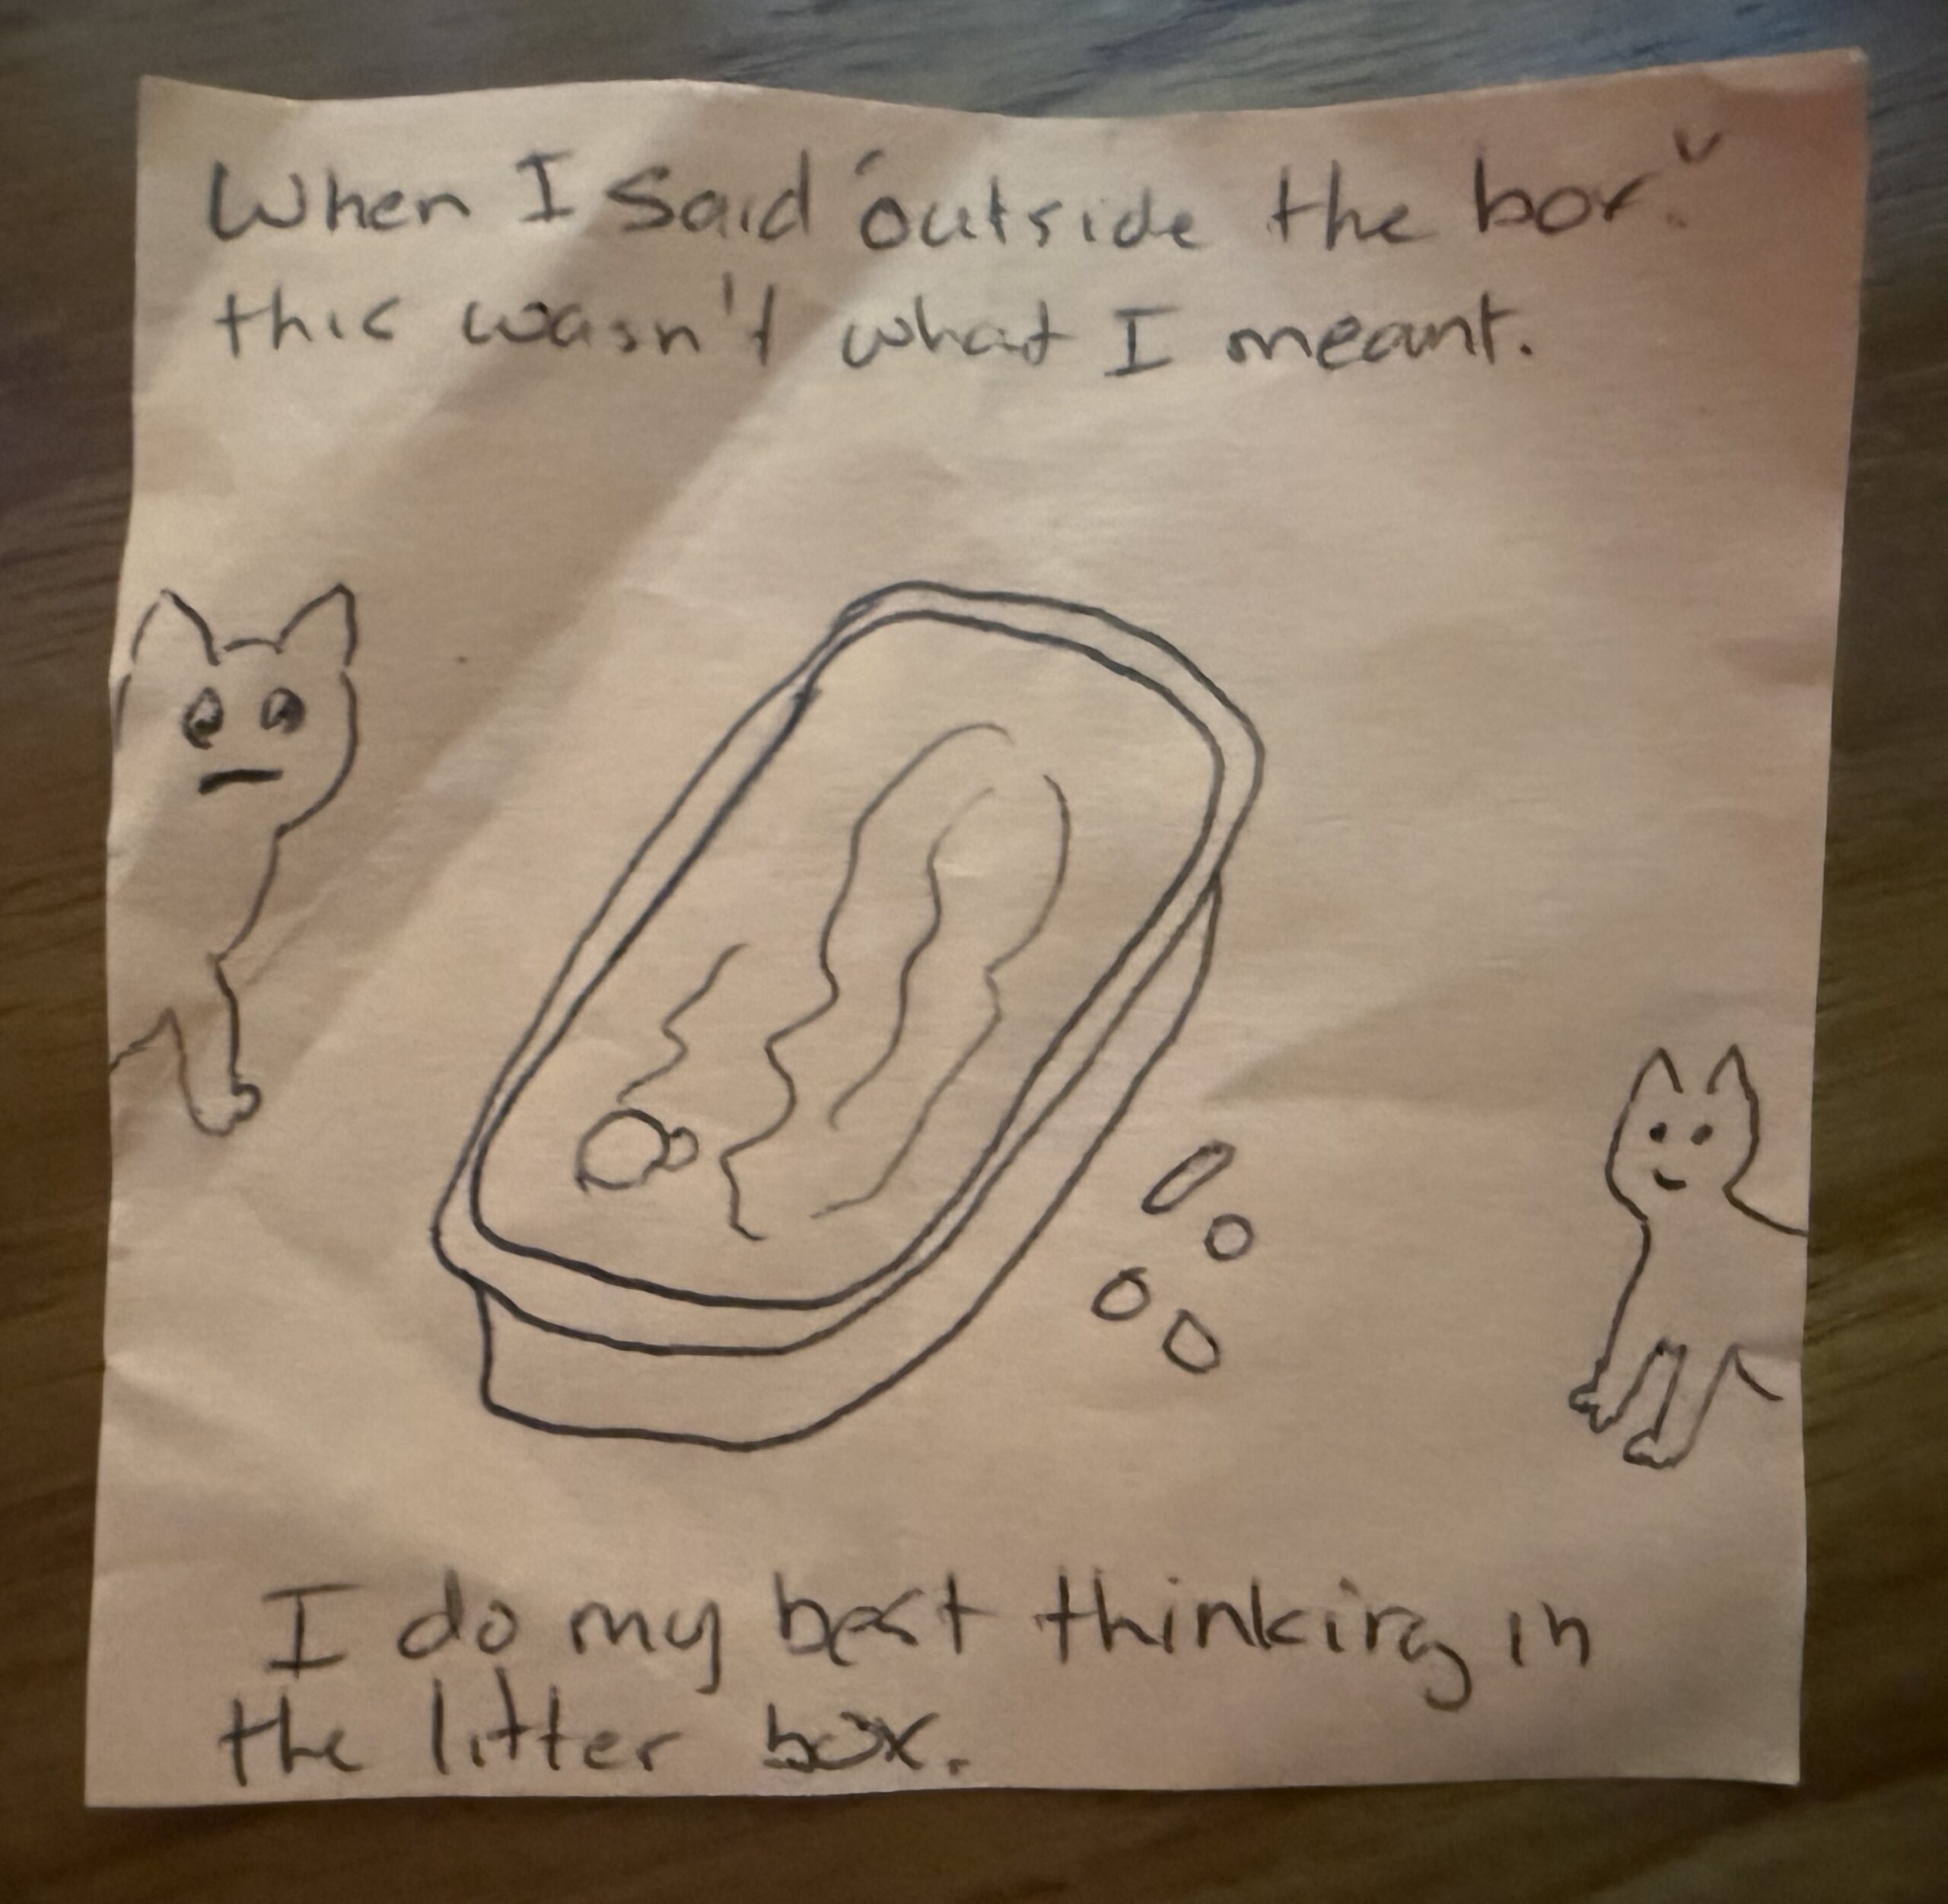 When I said "outside the box."
this wasn't what I meant.
I do my best thinking in
the litter box.